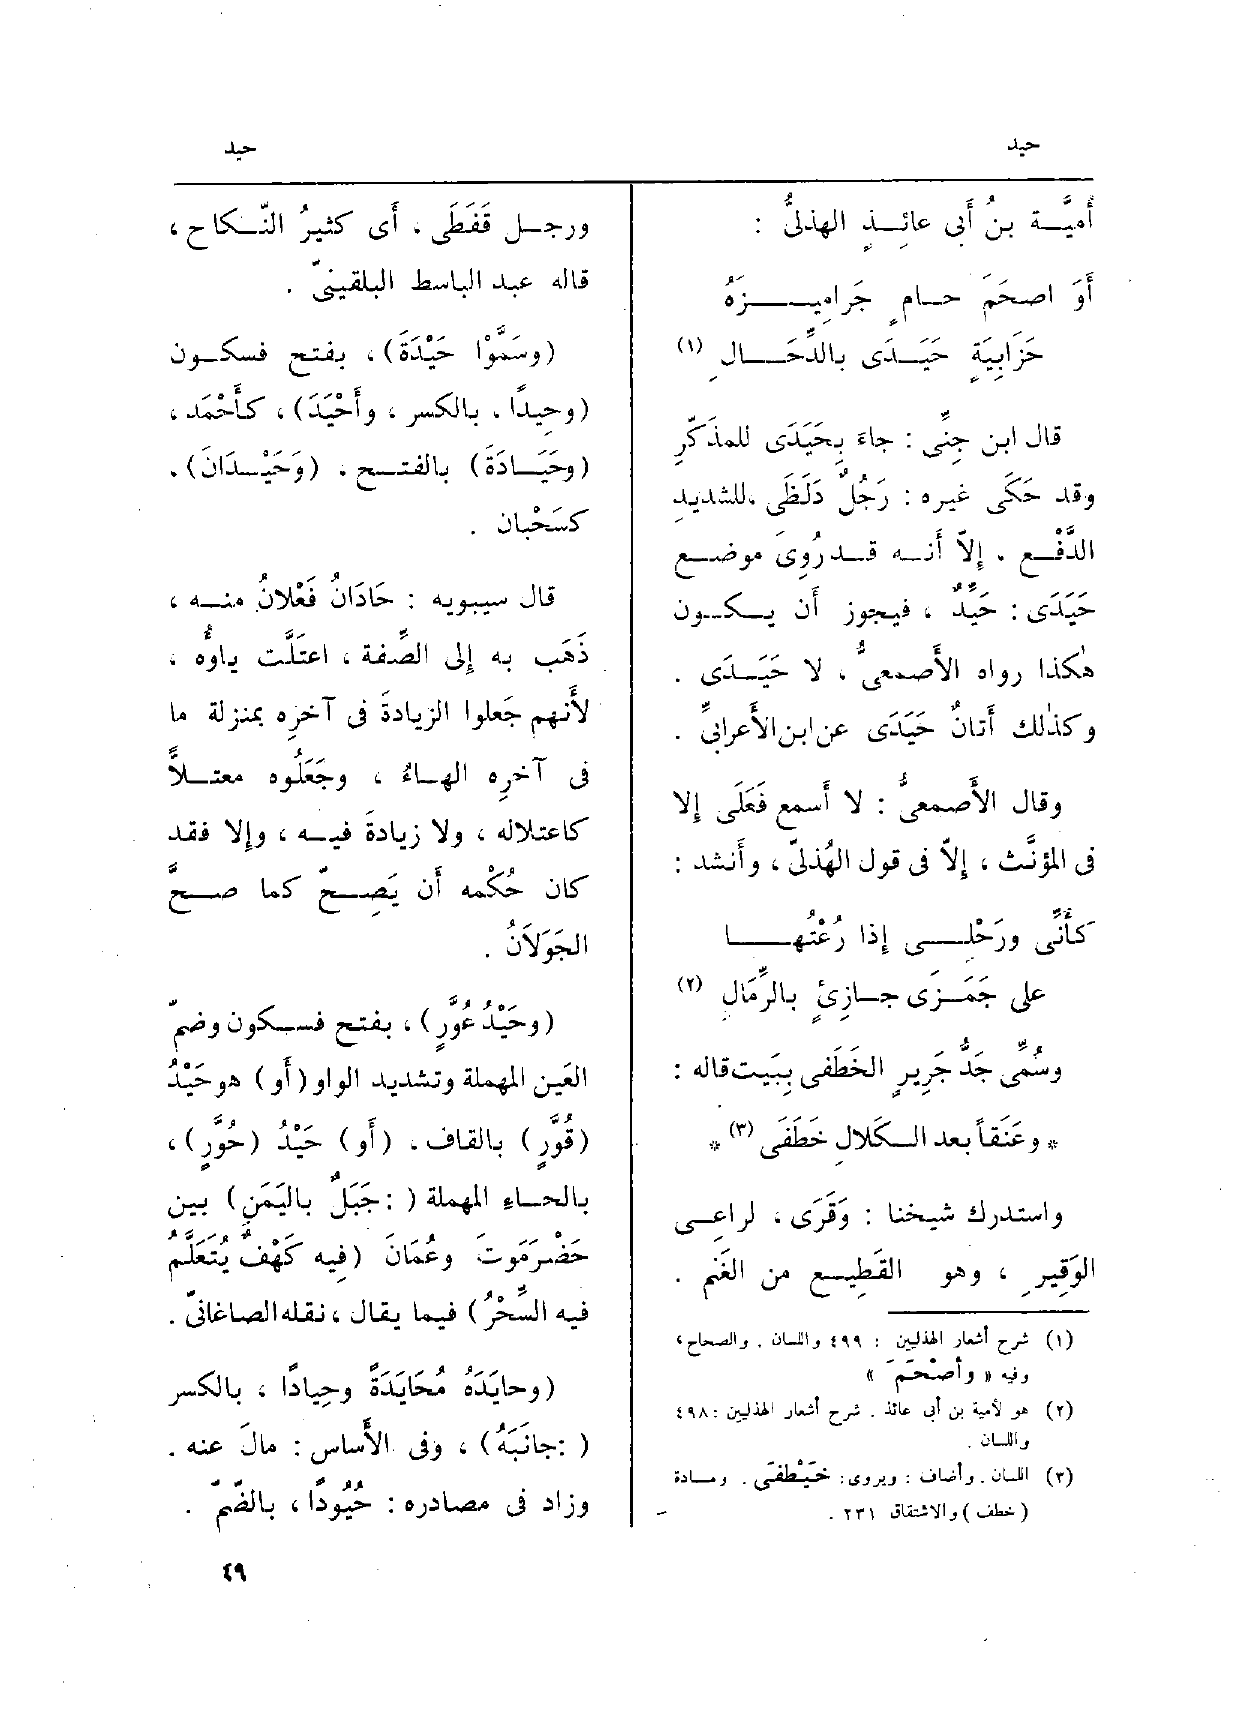 حيد
حيد
أُميَّــة بنُ أَبى عائــذٍ الهذلىُّ :
أَوَ اصحَمَ حــامٍ جَراميــــزَهُ
حَزَابِيَةٍ حَيَــدَى بالدِّحَــالِ (١)
قال ابن جِنِّى : جاءَ بِحَيَدَى للمذكّرِ
وقد حَكَى غيره : رَجُلٌ دَلَظَى ،للشديدِ
الدَّفْــع . إِلاّ أَنــه قــد رُوِىَ موضــع
حَيَدَى : حَيِّدٌ ، فيجوز أَن يــكــون
هٰكذا رواه الأَصمعىُّ ، لا حَيَــدَى .
وكذٰلك أَتانٌ حَيَدَى عن ابن الأَعرابىِّ .
وقال الأَصمعىُّ : لا أَسمع فَعَلَى إِلا
فى المؤنَّث ، إِلاّ فى قول الهُذلىّ ، وأَنشد :
كَأَنِّى ورَحْلــــى إِذا رُعْتُهــــا
على جَمَــزَى جــازِئٍ بالرِّمَالِ (٢)
وسُمِّى جَدُّ جَرِيرٍ الخَطَفَى بِبَيت قاله :
* وعَنَقاً بعد الــكَلالِ خَطَفَى (٣) *
واستدرك شيخنا : وَقَرَى ، لراعِــى
الوَقِيرِ ، وهو القَطِيــع من الغَنَم .
(١) شرح أشعار الهذليين : ٤٩٩ واللسان . والصحاح،
وفيه « وأَصْحَمَ »
(٢) هو لأمية بن أبى عائذ . شرح أشعار الهذليين : ٤٩٨
واللسان .
(٣) اللسان . وأضاف : ويروى : خَيْطَفَى . ومــادة
( خطف ) والاشتقاق ٢٣١ .
ورجــل قَفَطَى ، أَى كثيرُ النِّــكاح ،
قاله عبد الباسط البلقينىّ .
(وسَمَّوْا حَيْدَةَ) ، بفتح فسكــون
(وحِيدًا) . بالكسر ، وأَحْيَدَ) ، كــأَحْمَد ،
(وحَيَــادَةَ) بالفتــح . (وَحَيْــدَانَ) .
كسَحْبان .
قال سيبويه : حَادَانُ فَعْلانُ منــه ،
ذَهَب به إِلى الصِّفة ، اعتَلَّت ياؤُه ،
لأَنهم جَعلوا الزيادةَ فى آخرِه بمنزلة ما
فى آخرِه الهــاءُ ، وجَعَلُوه معتــلاًّ
كاعتلاله ، ولا زيادةَ فيــه ، وإِلا فقد
كان حُكْمه أَن يَصِــحّ كما صــحَّ
الجَوَلاَنُ .
(وحَيْدُ عُوَّرٍ) ، بفتح فســكون وضمّ
العَين المهملة وتشديد الواو (أَو) هو حَيْدُ
(قُوَّرٍ) بالقاف ، (أَو) حَيْدُ (حُوَّرٍ) ،
بالحــاءِ المهملة ( : جَبَلٌ باليَمَنِ) بين
حَضْرَمَوتَ وعُمَانَ (فِيه كَهْفٌ يُتَعَلَّمُ
فيه السِّحْرُ) فيما يقال ، نقله الصاغانىّ .
(وحايَدَهُ مُحَايَدَةً وحِيادًا ، بالكسر
( : جانَبَهُ) ، وفى الأَساس : مالَ عنه .
وزاد فى مصادره : حُيُودًا ، بالضّمّ .
٤٩